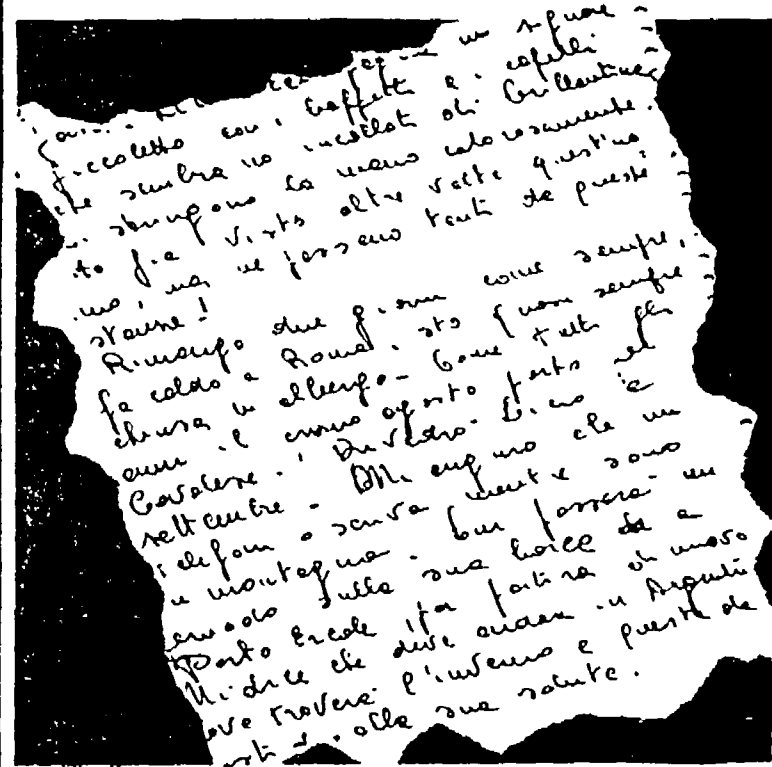 un signore
piccoletto con i baffetti e i capelli
che sembrano incollati di brillantina
mi stringono la mano calorosamente.
to già visto altre volte quest'uo
mo, ma ne passano tanti da queste
stanze!
Rimango due giorni come sempre,
fa caldo a Roma, sto quasi sempre
chiusa in albergo. Come tutti gli
anni il primo agosto parto per
Cavalese. Rivedrò Dino in
settembre. Mi auguro che mi
telefoni o scriva mentre sono
in montagna. Lui passerà un
periodo sulla sua barca da a
Porto Ercole, poi partirà di nuovo
Mi dice che deve andare in Argentina
dove troverà l'inverno e questo
alla sua salute.